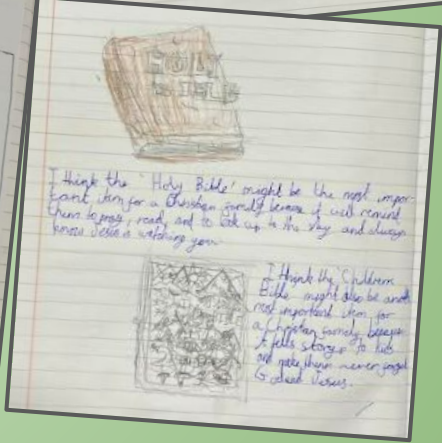 HOLY
BIBLE
I think the 'Holy Bible' might be the most impor-
tant item for a Christian family because it will remind
them to pray, read, and to look up to the sky and always
know Jesus is watching you
I think the Children
Bible might also be
most important item for
a Christian family because
it tells storys to kids
and make them never forget
God and Jesus.